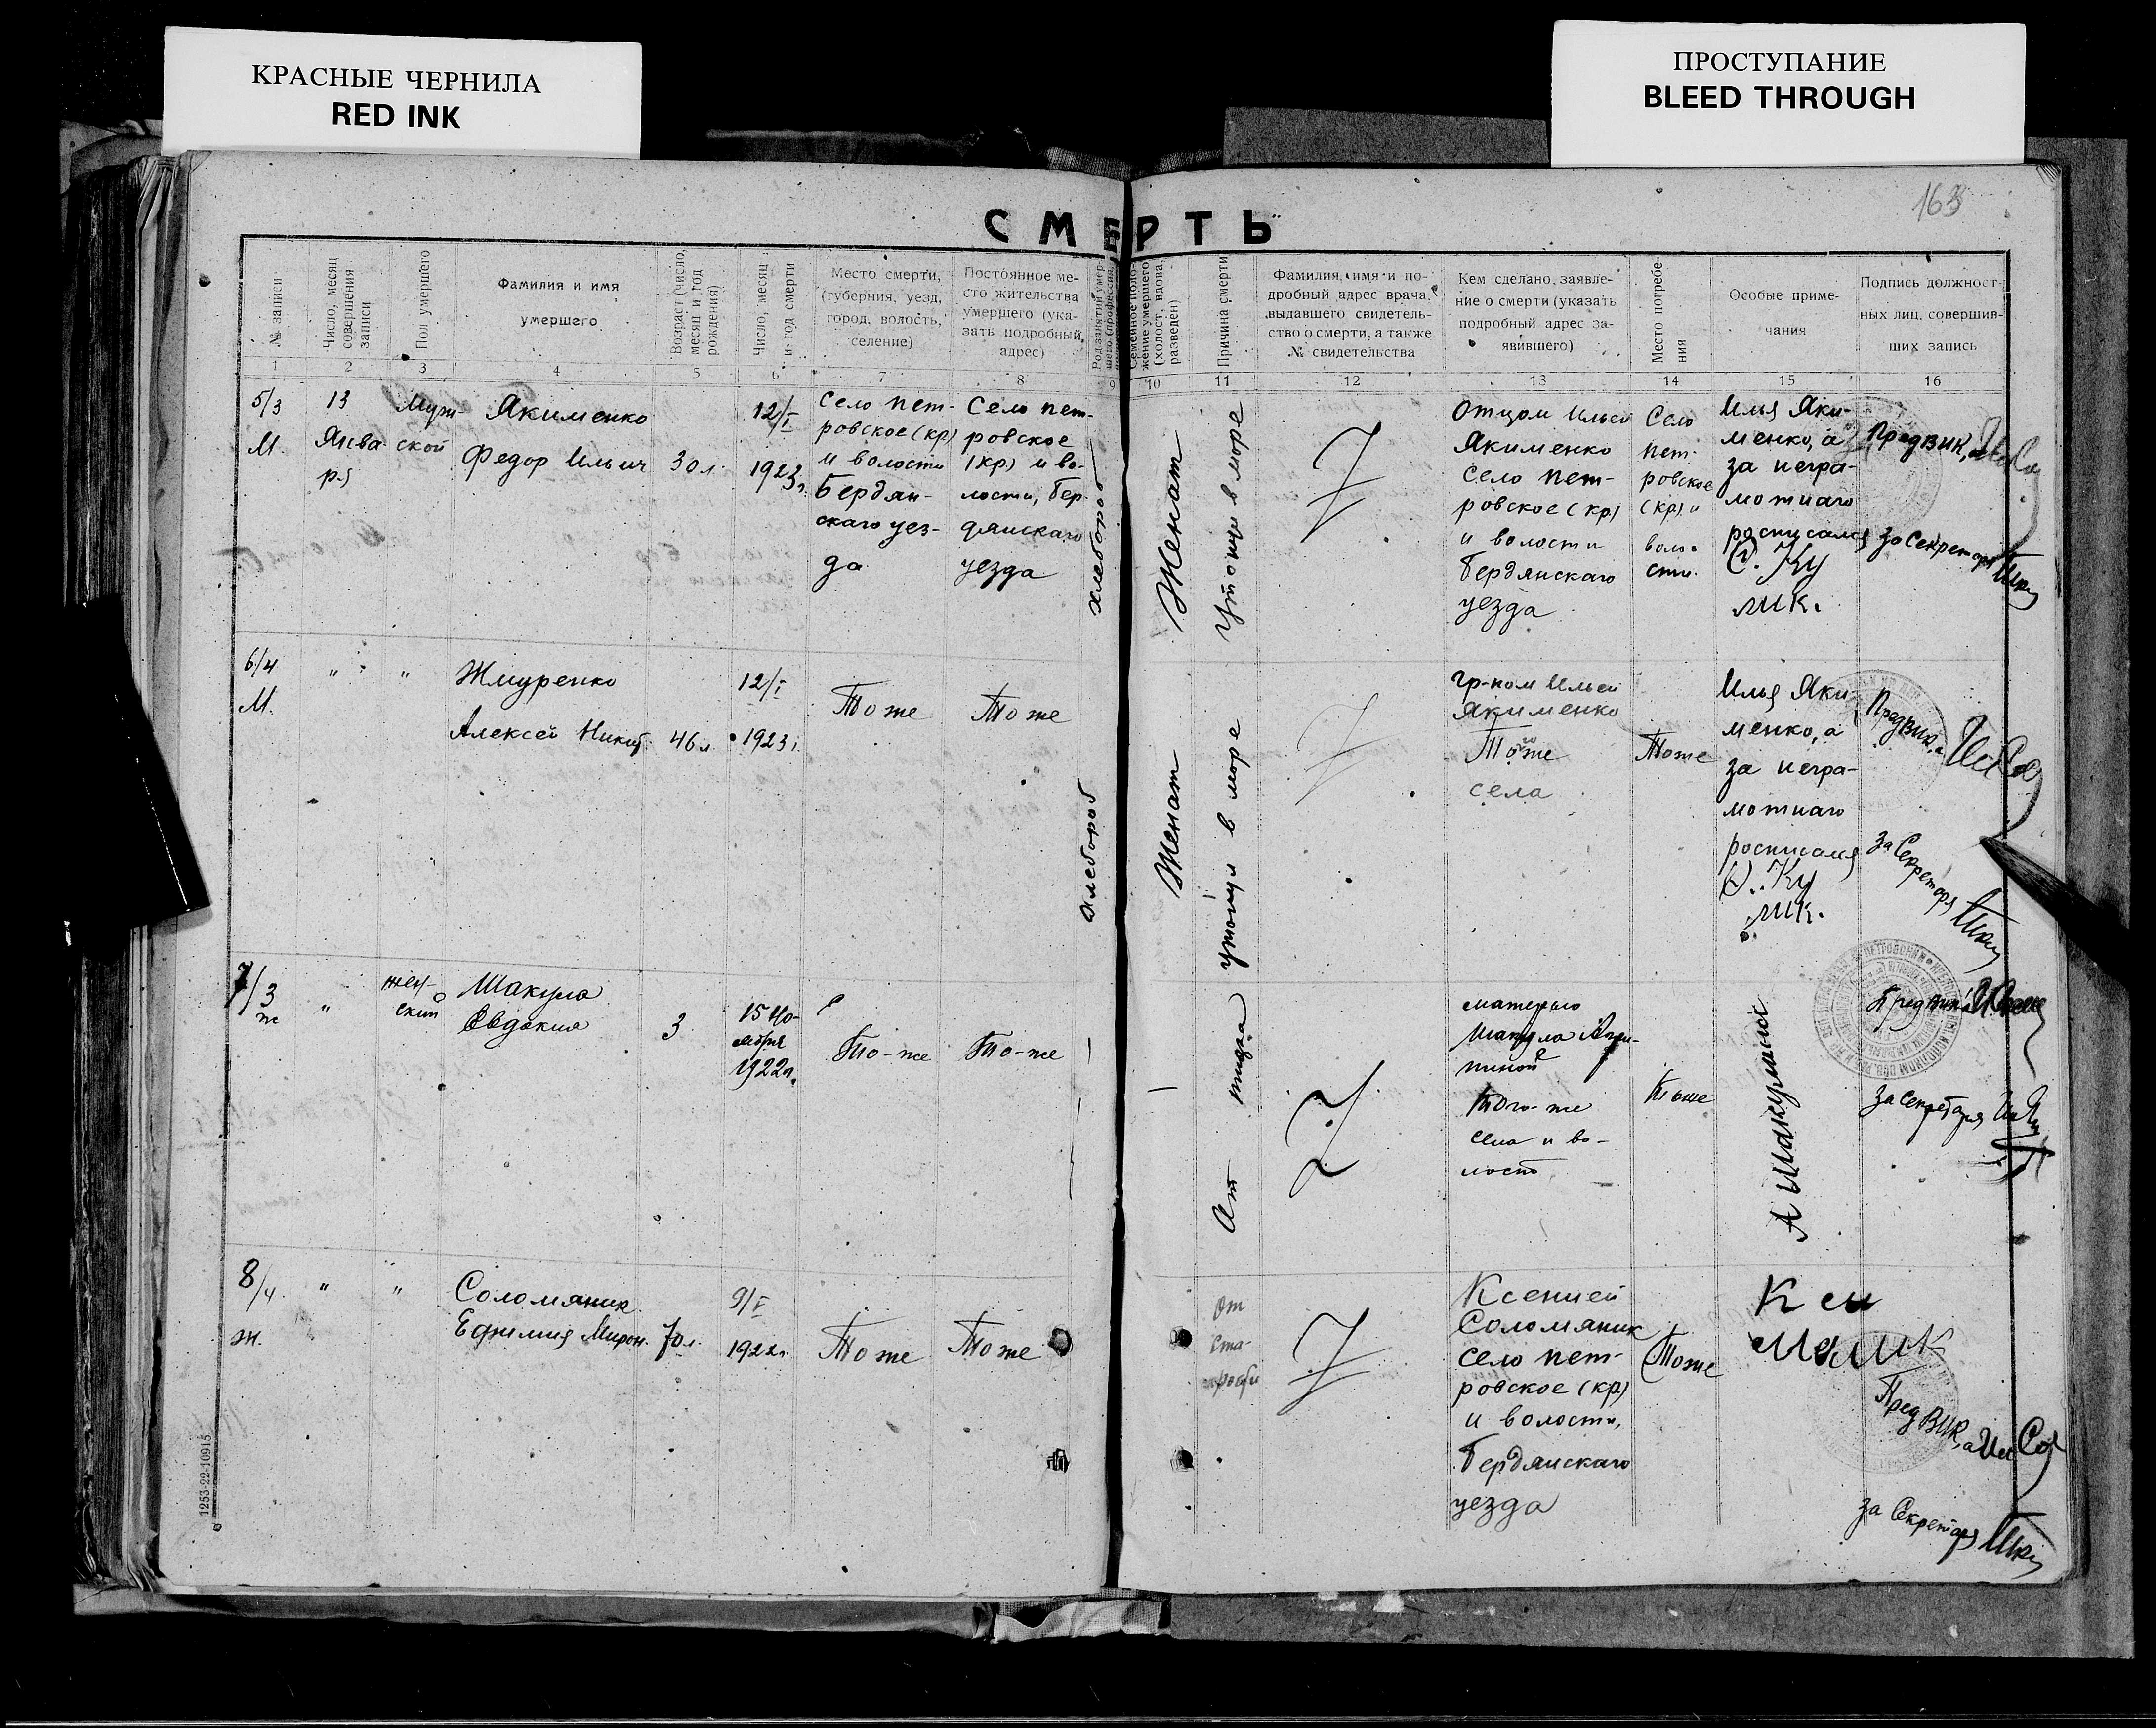 КРАСНЫЕ ЧЕРНИЛА
RED INK
ПРОСТУПАНИЕ
BLEED THROUGH
163
СМЕРТЬ
№ записи
Число, месяц
совершения
записи
Пол умершего
Фамилия и имя
умершего
Возраст (число,
месяц и год
рождения)
Число, месяц
и год смерти
Место смерти,
(губерния, уезд,
город, волость,
селение)
Постоянное ме-
сто жительства
умершего (ука-
зать подробный
адрес)
Род занятий умер-
шего (профессия,
Семейное поло-
жение умершего
(холост, вдова,
разведен)
Причина смерти
Фамилия, имя и по-
дробный адрес врача,
выдавшего свидетель-
ство о смерти, а также
№ свидетельства
Кем сделано заявле-
ние о смерти (указать
подробный адрес за-
явившего)
Место погребе-
ния
Особые приме-
чания
Подпись должност-
ных лиц, совершив-
ших запись
1 2 3 4 5 6 7 8 9 10 11 12 13 14 15 16
5/3
М.
13
Янва
ря
Муж-
ской
Якименко
Федор Ильич
30 л.
12/I
1923 г.
Село Пет-
ровское (кр)
и волости
Бердян-
скаго уез-
да
Село Пет-
ровское
(кр) и во-
лости, Бер-
дянскаго
уезда
хлебороб
Женат
утонул в море
Отцом Ильей
Якименко
Село Пет-
ровское (кр)
и волости
Бердянскаго
уезда
Село
Пет-
ровское
(кр) и
воло-
сти.
Илья Яки-
менко, а
за негра-
мотнаго
росписался
С. Ку
лик.
Предвик,а
за Секретаря
6/4
М.
" "
Жмуренко
Алексей Никит.
46 л.
12/I
1923 г.
Тоже
Тоже
хлебороб
Женат
утонул в море
гр-ном Ильей
Якименко
села
Тоже
Илья Яки-
менко, а
за негра-
мотнаго
росписался
С. Ку
лик.
Предвик,а
за Секретаря
7/3
ж
"
жен-
ский
Шакула
Евдокия
3
15 но-
ября
1922 г.
То-же
То-же
От
матерью
Шакула
того-же
села и во-
лости
Тоже
А Шакулина
Предвика
за секретаря
8/4
ж.
" "
Соломяник
Ефимия Мирон.
70 л.
9/I
1922 г.
Тоже
Тоже
От
ста-
рости
Ксенией
Соломяник
село Пет-
ровское (кр)
и волости,
Бердянскаго
уезда
Тоже
Предвик,а
за Секретаря
1253-22-10915